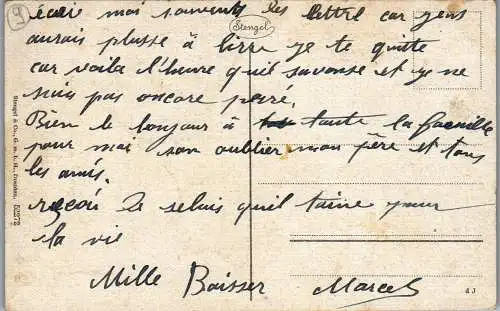 9
écrir moi souvent des lettre car gens
Stengel
aurais plusse à lirre je te quitte
car voila l'heure qu'il savonse et je ne
suis pas oncore peiré.
Bien le bonjour à toute la famille
pour moi son oublier mon père et tous
les amis.
reçoi le selui qu'il t'aime pour
la vie
Mille Baisser Marcel
Stengel & Co., G. m. b. H., Dresden. 52272
43